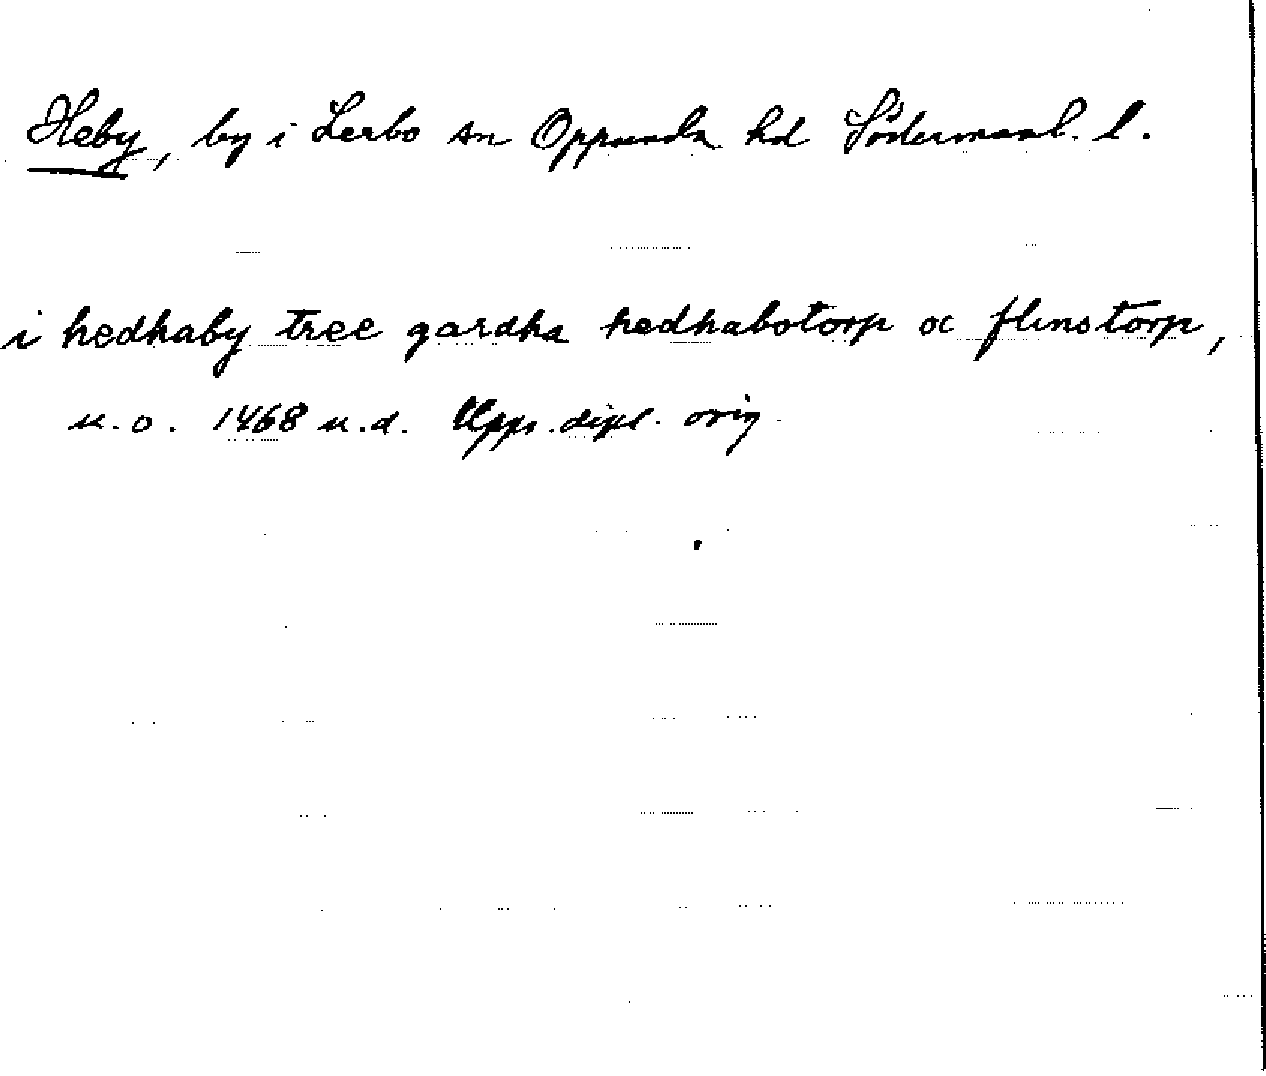 Heby, by i Lerbo sn Oppunda hd Södermanl. l.
i hedhaby tree gardha hedhabotorp oc flinstorp,
u.o. 1468 u.d. Upps. dipl. orig